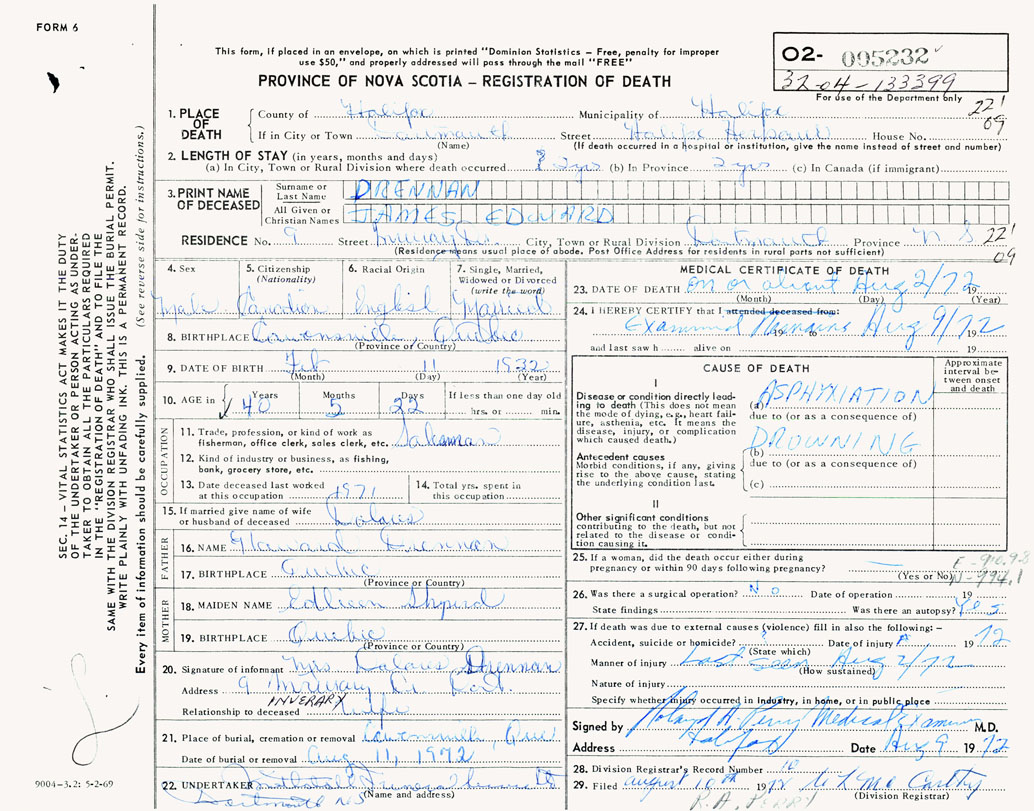 FORM 6
This form, if placed in an envelope, on which is printed "Dominion Statistics – Free, penalty for improper
use $50," and properly addressed will pass through the mail "FREE"
PROVINCE OF NOVA SCOTIA – REGISTRATION OF DEATH
O2- 095232
32-04-133399
For use of the Department only
221
09
1. PLACE OF DEATH
County of Halifax Municipality of Halifax
If in City or Town Street Halifax House No.
(Name) (If death occurred in a hospital or institution, give the name instead of street and number)
2. LENGTH OF STAY (in years, months and days)
(a) In City, Town or Rural Division where death occurred 2 yrs (b) In Province 2 yrs (c) In Canada (if immigrant)
3. PRINT NAME OF DECEASED
Surname or Last Name DRENNAN
All Given or Christian Names JAMES EDWARD
RESIDENCE No. 9 Street City, Town or Rural Division Dartmouth Province N S 221
(Residence means usual place of abode. Post Office Address for residents in rural parts not sufficient) 09
4. Sex 5. Citizenship (Nationality) 6. Racial Origin 7. Single, Married, Widowed or Divorced (write the word)
Male Canadian English Married
8. BIRTHPLACE Quebec
(Province or Country)
9. DATE OF BIRTH Feb 11 1932
(Month) (Day) (Year)
10. AGE in Years Months Days If less than one day old
40 5 22 hrs. or min.
OCCUPATION
11. Trade, profession, or kind of work as fisherman, office clerk, sales clerk, etc. Salesman
12. Kind of industry or business, as fishing, bank, grocery store, etc.
13. Date deceased last worked at this occupation 1971
14. Total yrs. spent in this occupation
15. If married give name of wife or husband of deceased
FATHER
16. NAME Drennan
17. BIRTHPLACE Quebec
(Province or Country)
MOTHER
18. MAIDEN NAME
19. BIRTHPLACE Quebec
(Province or Country)
20. Signature of informant Mrs Drennan
Address 9
INVERARY
Relationship to deceased wife
21. Place of burial, cremation or removal Que
Date of burial or removal Aug 11, 1972
22. UNDERTAKER Funeral Home
(Name and address)
Dartmouth NS
MEDICAL CERTIFICATE OF DEATH
23. DATE OF DEATH on or about Aug 2/72 19
(Month) (Day) (Year)
24. I HEREBY CERTIFY that I attended deceased from:
Examined Remains Aug 9/72
and last saw h alive on 19
CAUSE OF DEATH
Approximate interval between onset and death
I
Disease or condition directly leading to death (This does not mean the mode of dying, e.g., heart failure, asthenia, etc. It means the disease, injury, or complication which caused death.)
(a) ASPHYXIATION
due to (or as a consequence of)
DROWNING
Antecedent causes
Morbid conditions, if any, giving rise to the above cause, stating the underlying condition last.
(b)
due to (or as a consequence of)
(c)
II
Other significant conditions
contributing to the death, but not related to the disease or condition causing it.
25. If a woman, did the death occur either during pregnancy or within 90 days following pregnancy? —
(Yes or No)
E-910.98
N-994.1
26. Was there a surgical operation? No Date of operation 19
State findings Was there an autopsy? Yes
27. If death was due to external causes (violence) fill in also the following: –
Accident, suicide or homicide? ? Date of injury 19 72
(State which)
Manner of injury Last seen Aug 2/72
(How sustained)
Nature of injury
Specify whether injury occurred in industry, in home, or in public place
Signed by Roland A. Perry Medical Examiner M.D.
Address Halifax Date Aug 9 19 72
28. Division Registrar's Record Number 10
29. Filed August 10th 1972
(Division Registrar)
R.A. PERRY
SEC. 14 – VITAL STATISTICS ACT MAKES IT THE DUTY
OF THE UNDERTAKER OR PERSON ACTING AS UNDER-
TAKER TO OBTAIN ALL THE PARTICULARS REQUIRED
IN THE "REGISTRATION OF DEATH" AND TO FILE THE
SAME WITH THE DIVISION REGISTRAR WHO SHALL ISSUE THE BURIAL PERMIT.
WRITE PLAINLY WITH UNFADING INK. THIS IS A PERMANENT RECORD.
Every item of information should be carefully supplied. (See reverse side for instructions.)
9004-3.2: 5-2-69